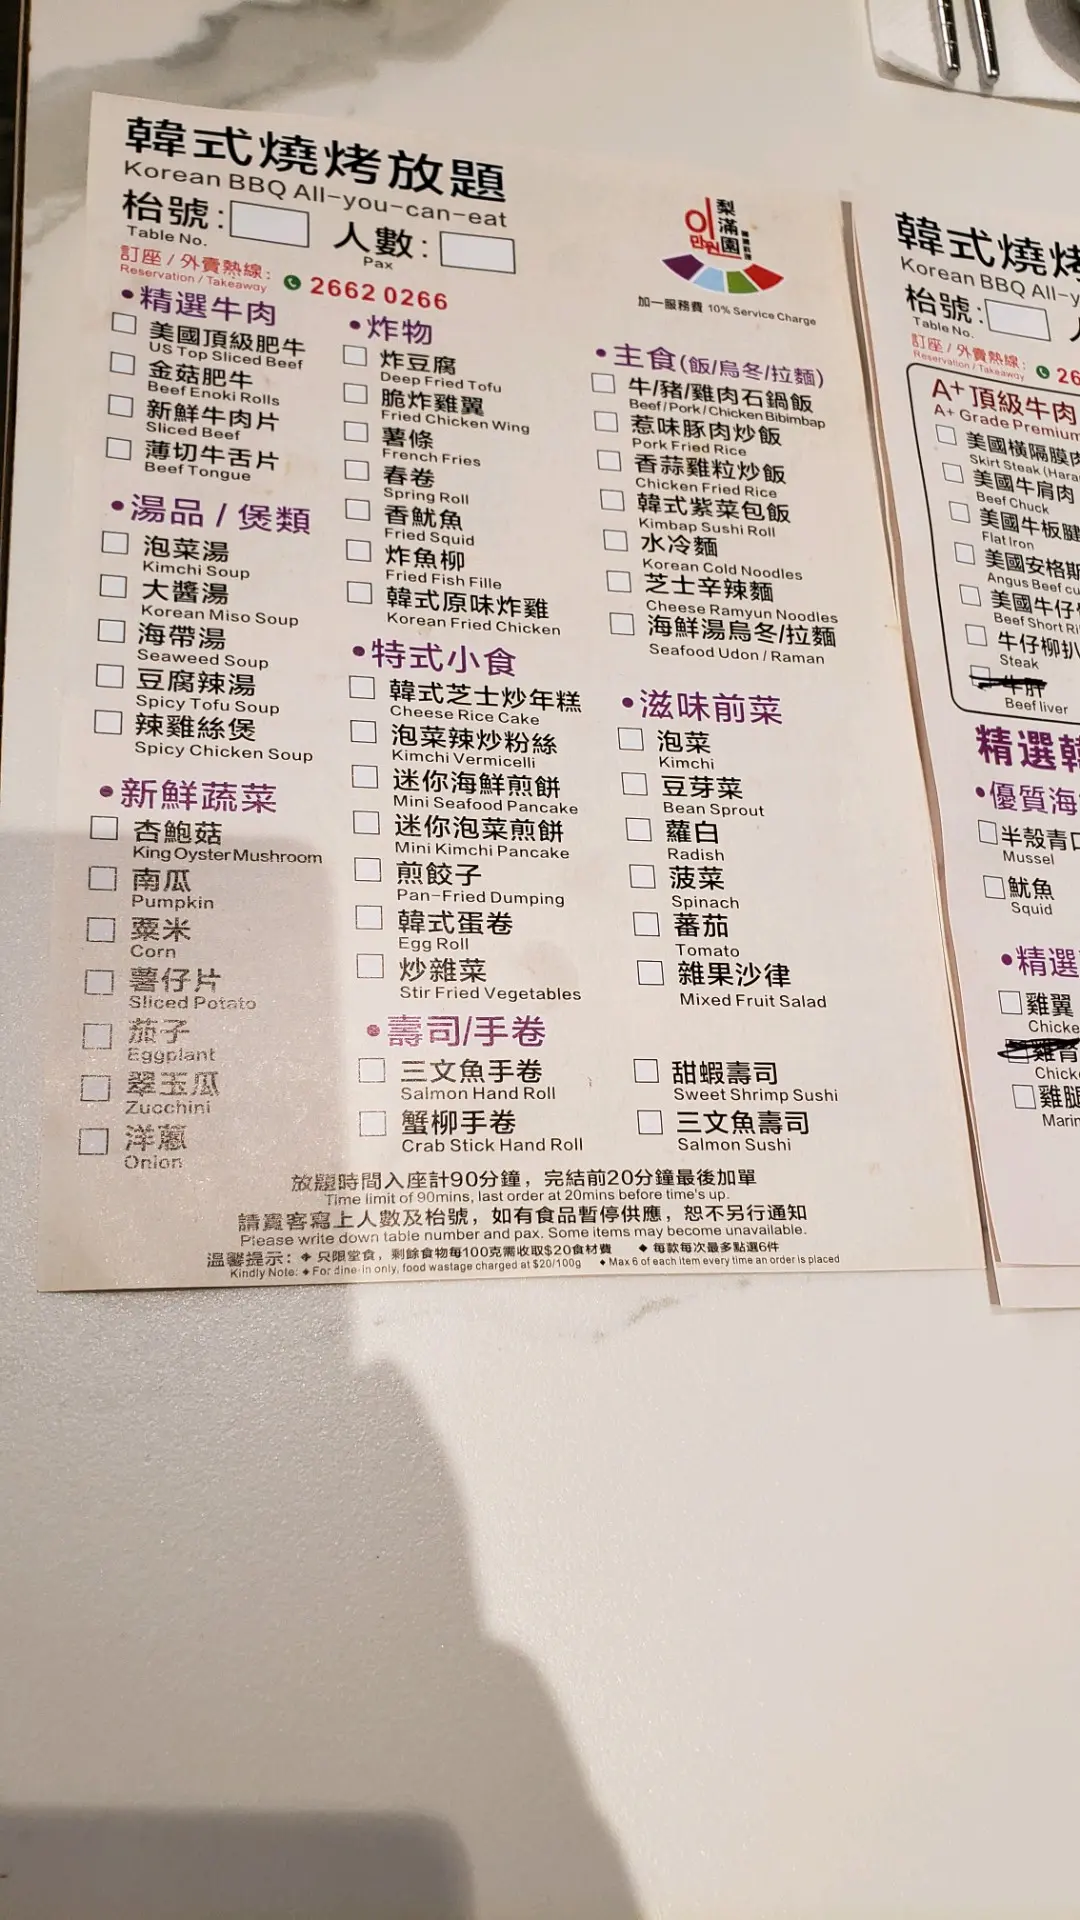 韓式燒烤放題
Korean BBQ All-you-can-eat
枱號:
Table No.
人數:
Pax
訂座 / 外賣熱線:
Reservation / Takeaway
2662 0266
梨滿園
이만원
加一服務費 10% Service Charge
•精選牛肉
美國頂級肥牛
US Top Sliced Beef
金菇肥牛
Beef Enoki Rolls
新鮮牛肉片
Sliced Beef
薄切牛舌片
Beef Tongue
•湯品 / 煲類
泡菜湯
Kimchi Soup
大醬湯
Korean Miso Soup
海帶湯
Seaweed Soup
豆腐辣湯
Spicy Tofu Soup
辣雞絲煲
Spicy Chicken Soup
•新鮮蔬菜
杏鮑菇
King Oyster Mushroom
南瓜
Pumpkin
粟米
Corn
薯仔片
Sliced Potato
茄子
Eggplant
翠玉瓜
Zucchini
洋蔥
Onion
•炸物
炸豆腐
Deep Fried Tofu
脆炸雞翼
Fried Chicken Wing
薯條
French Fries
春卷
Spring Roll
香魷魚
Fried Squid
炸魚柳
Fried Fish Fille
韓式原味炸雞
Korean Fried Chicken
•特式小食
韓式芝士炒年糕
Cheese Rice Cake
泡菜辣炒粉絲
Kimchi Vermicelli
迷你海鮮煎餅
Mini Seafood Pancake
迷你泡菜煎餅
Mini Kimchi Pancake
煎餃子
Pan-Fried Dumping
韓式蛋卷
Egg Roll
炒雜菜
Stir Fried Vegetables
•主食(飯/烏冬/拉麵)
牛/豬/雞肉石鍋飯
Beef / Pork / Chicken Bibimbap
惹味豚肉炒飯
Pork Fried Rice
香蒜雞粒炒飯
Chicken Fried Rice
韓式紫菜包飯
Kimbap Sushi Roll
水冷麵
Korean Cold Noodles
芝士辛辣麵
Cheese Ramyun Noodles
海鮮湯烏冬/拉麵
Seafood Udon / Raman
•滋味前菜
泡菜
Kimchi
豆芽菜
Bean Sprout
蘿白
Radish
菠菜
Spinach
蕃茄
Tomato
雜果沙律
Mixed Fruit Salad
•壽司/手卷
三文魚手卷
Salmon Hand Roll
蟹柳手卷
Crab Stick Hand Roll
甜蝦壽司
Sweet Shrimp Sushi
三文魚壽司
Salmon Sushi
放題時間入座計90分鐘，完結前20分鐘最後加單
Time limit of 90mins, last order at 20mins before time's up.
請貴客寫上人數及枱號，如有食品暫停供應，恕不另行通知
Please write down table number and pax. Some items may become unavailable.
溫馨提示: ◆ 只限堂食，剩餘食物每100克需收取$20食材費 ◆ 每款每次最多點選6件
Kindly Note: ◆ For dine-in only, food wastage charged at $20/100g ◆ Max 6 of each item every time an order is placed
韓式燒烤
Korean BBQ All-y
枱號:
Table No.
訂座 / 外賣熱線:
Reservation / Takeaway
26
A+ 頂級牛肉
A+ Grade Premium
美國橫隔膜肉
Skirt Steak (Hara
美國牛肩肉
Beef Chuck
美國牛板腱
Flat Iron
美國安格斯
Angus Beef cu
美國牛仔
Beef Short Ri
牛仔柳扒
Steak
牛肝
Beef liver
精選韓
•優質海
半殼青口
Mussel
魷魚
Squid
•精選
雞翼
Chicke
Chick
雞腿
Marin